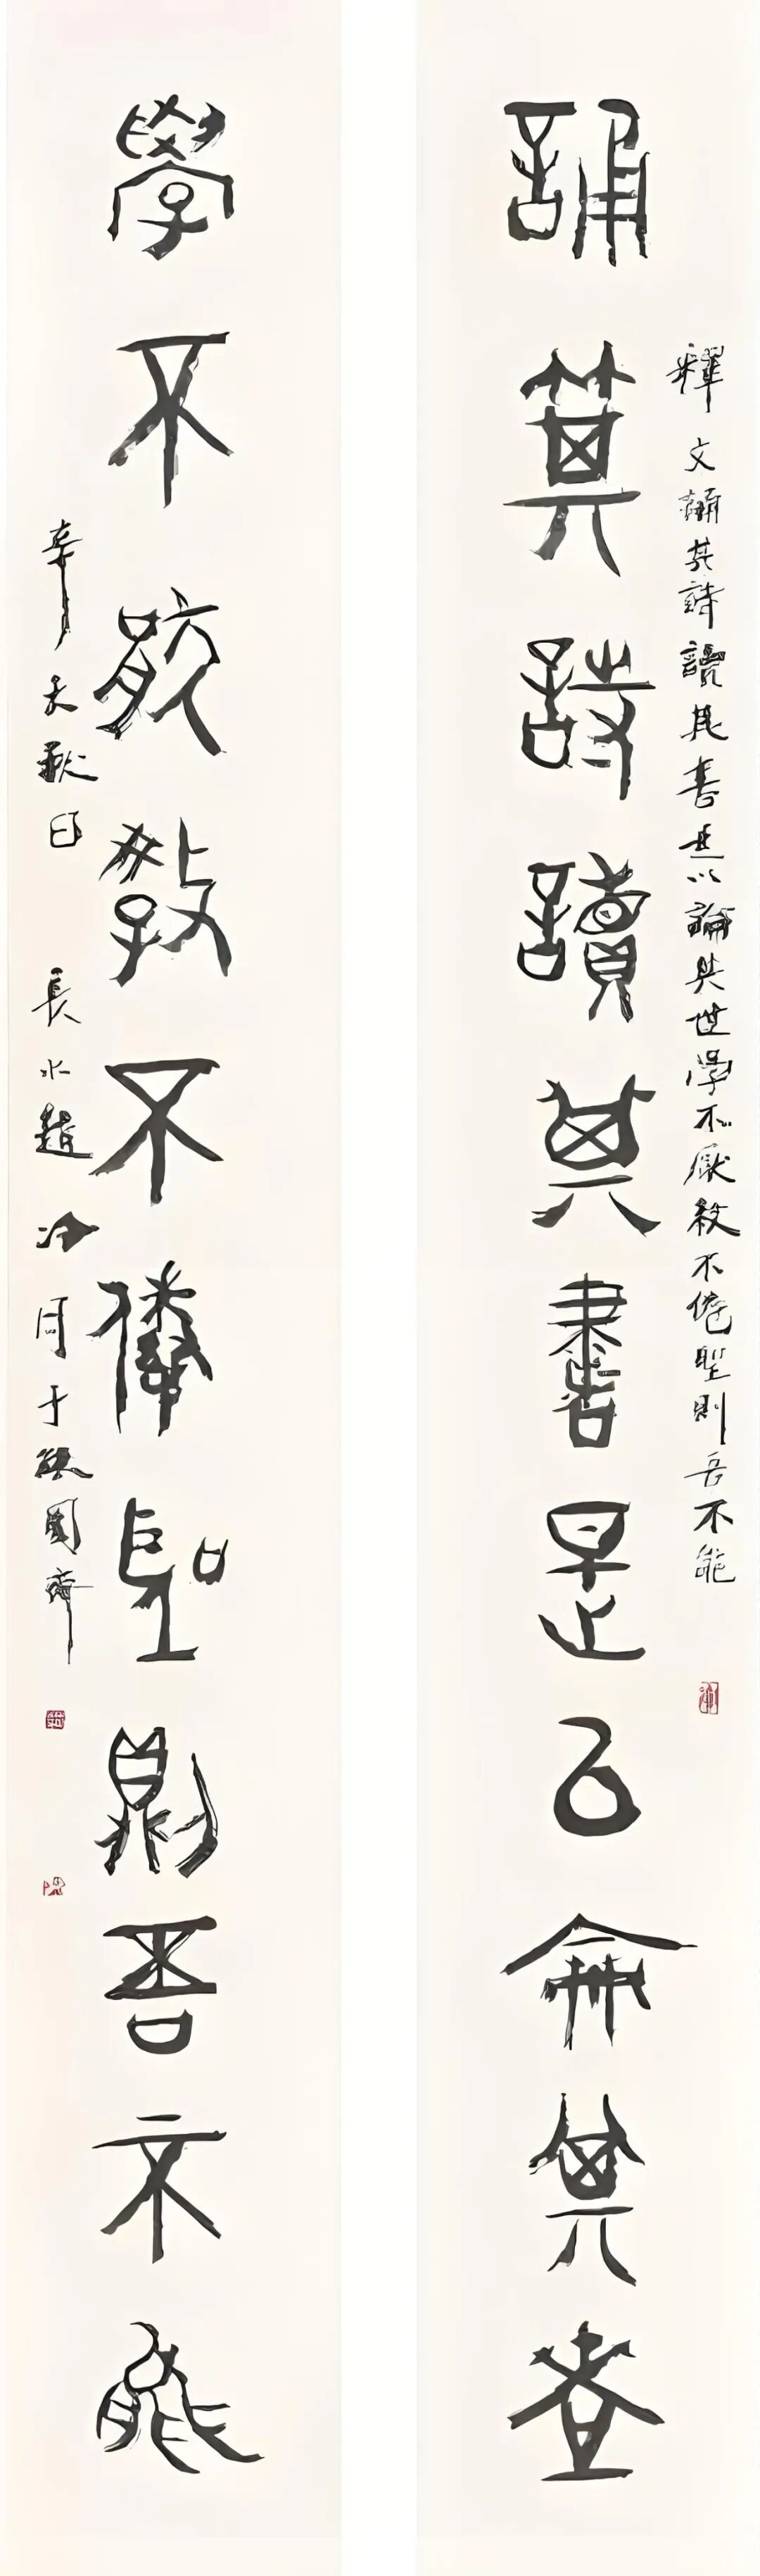 誦其詩讀其書是以論其世
釋文誦其詩讀其書是以論其世學不厭教不倦聖則吾不能
學不厭教不倦聖則吾不能
辛丑秋日 長水趙冷月于缺圓齋